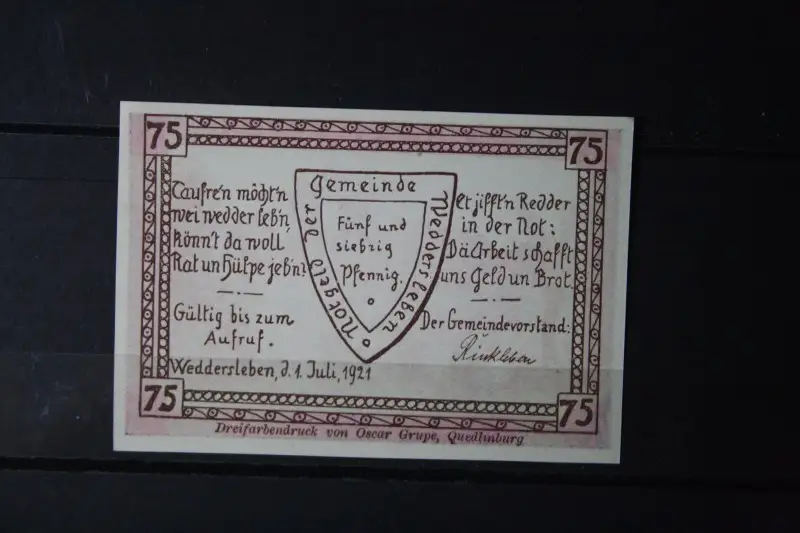 75
75
Taufre'n möcht'n
wei wedder leb'n,
könn't da woll
Rat un Hülpe jeb'n?
Gültig bis zum
Aufruf.
Weddersleben, d. 1. Juli, 1921
Notgeld der Gemeinde Weddersleben
Fünf und
siebzig
Pfennig.
et jifft'n Redder
in der Not:
Dä Arbeit schafft
uns Geld un Brot.
Der Gemeindevorstand:
Rinkleben
75
75
Dreifarbendruck von Oscar Grupe, Quedlinburg